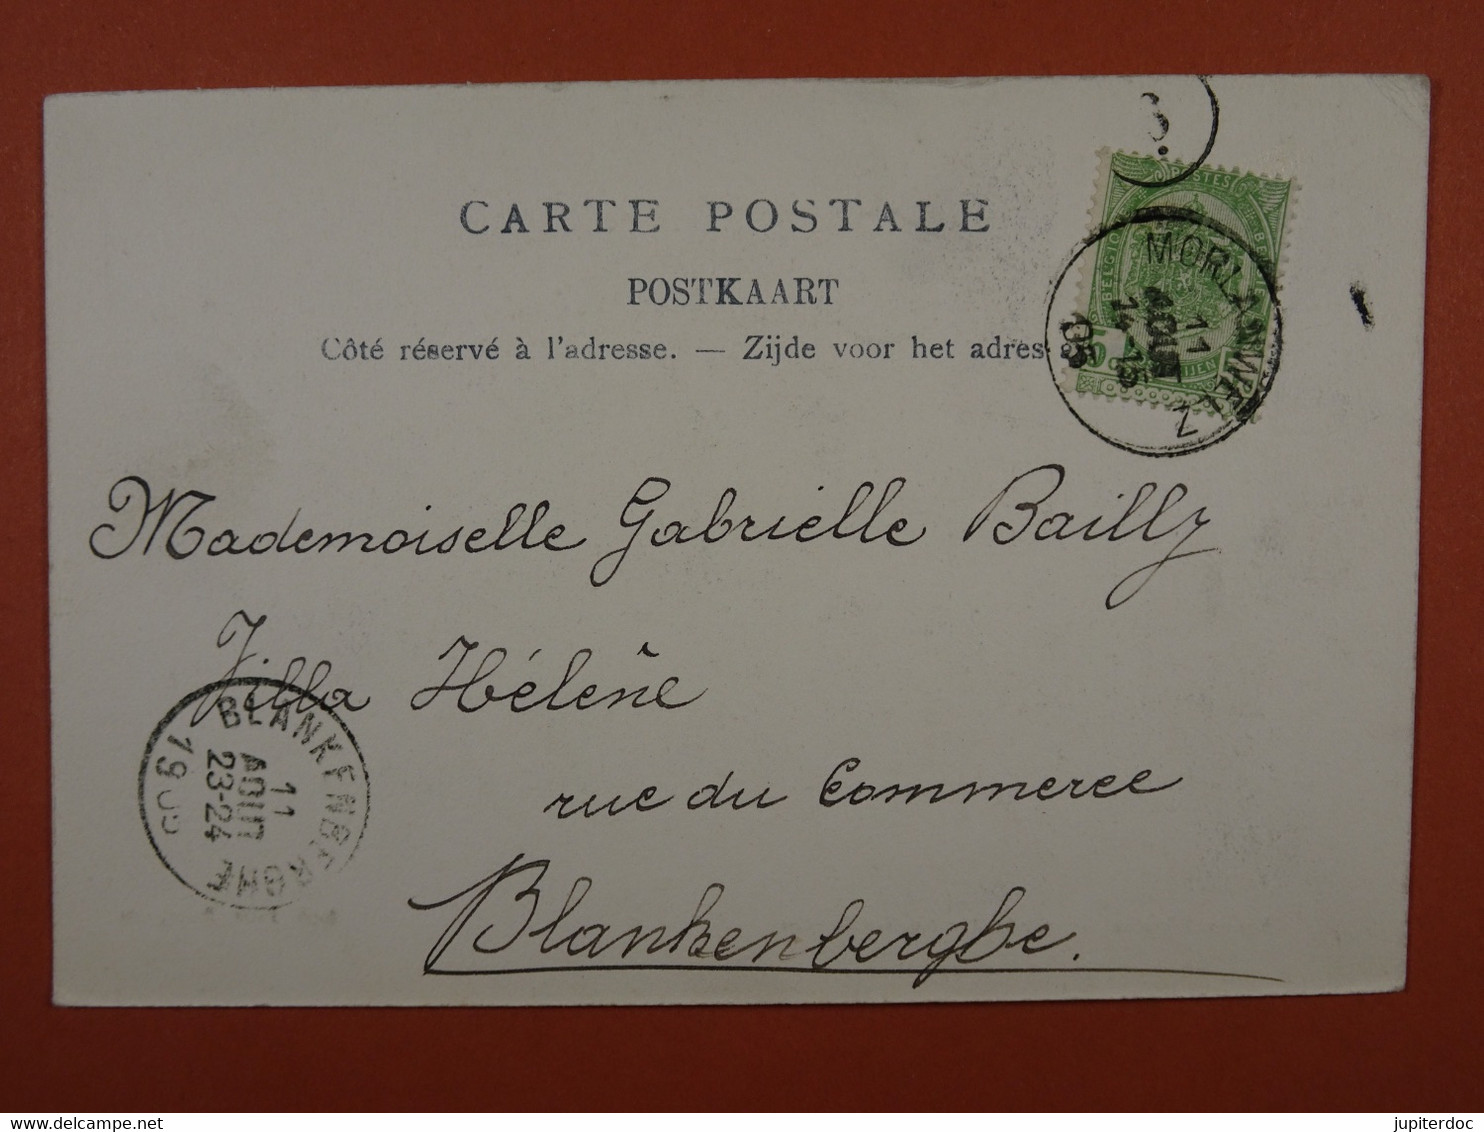 3
POSTES
BELGIQUE
MORLANWELZ
11
AOUT
14-15
05
CARTE POSTALE
POSTKAART
Côté réservé à l'adresse. — Zijde voor het adres
Mademoiselle Gabrielle Bailly
Villa Hélène
rue du Commerce
Blankenberghe.
BLANKENBERGHE
11
AOUT
23-24
1905
jupiterdoc